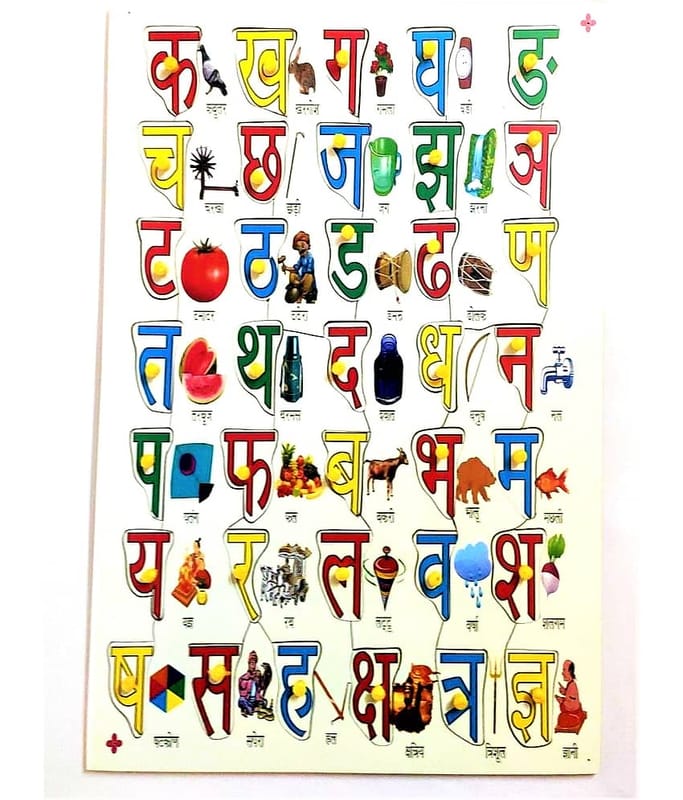 क ख ग घ ङ
कबूतर खरगोश गमला घड़ी
च छ ज झ ञ
चरखा छड़ी जग झरना
ट ठ ड ढ ण
टमाटर ठठेरा डमरू ढोलक
त थ द ध न
तरबूज थरमस दवात धनुष नल
प फ ब भ म
पतंग फल बकरी भालू मछली
य र ल व श
यज्ञ रथ लट्टू वर्षा शलगम
ष स ह क्ष त्र ज्ञ
षटकोण सपेरा हल क्षत्रिय त्रिशूल ज्ञानी